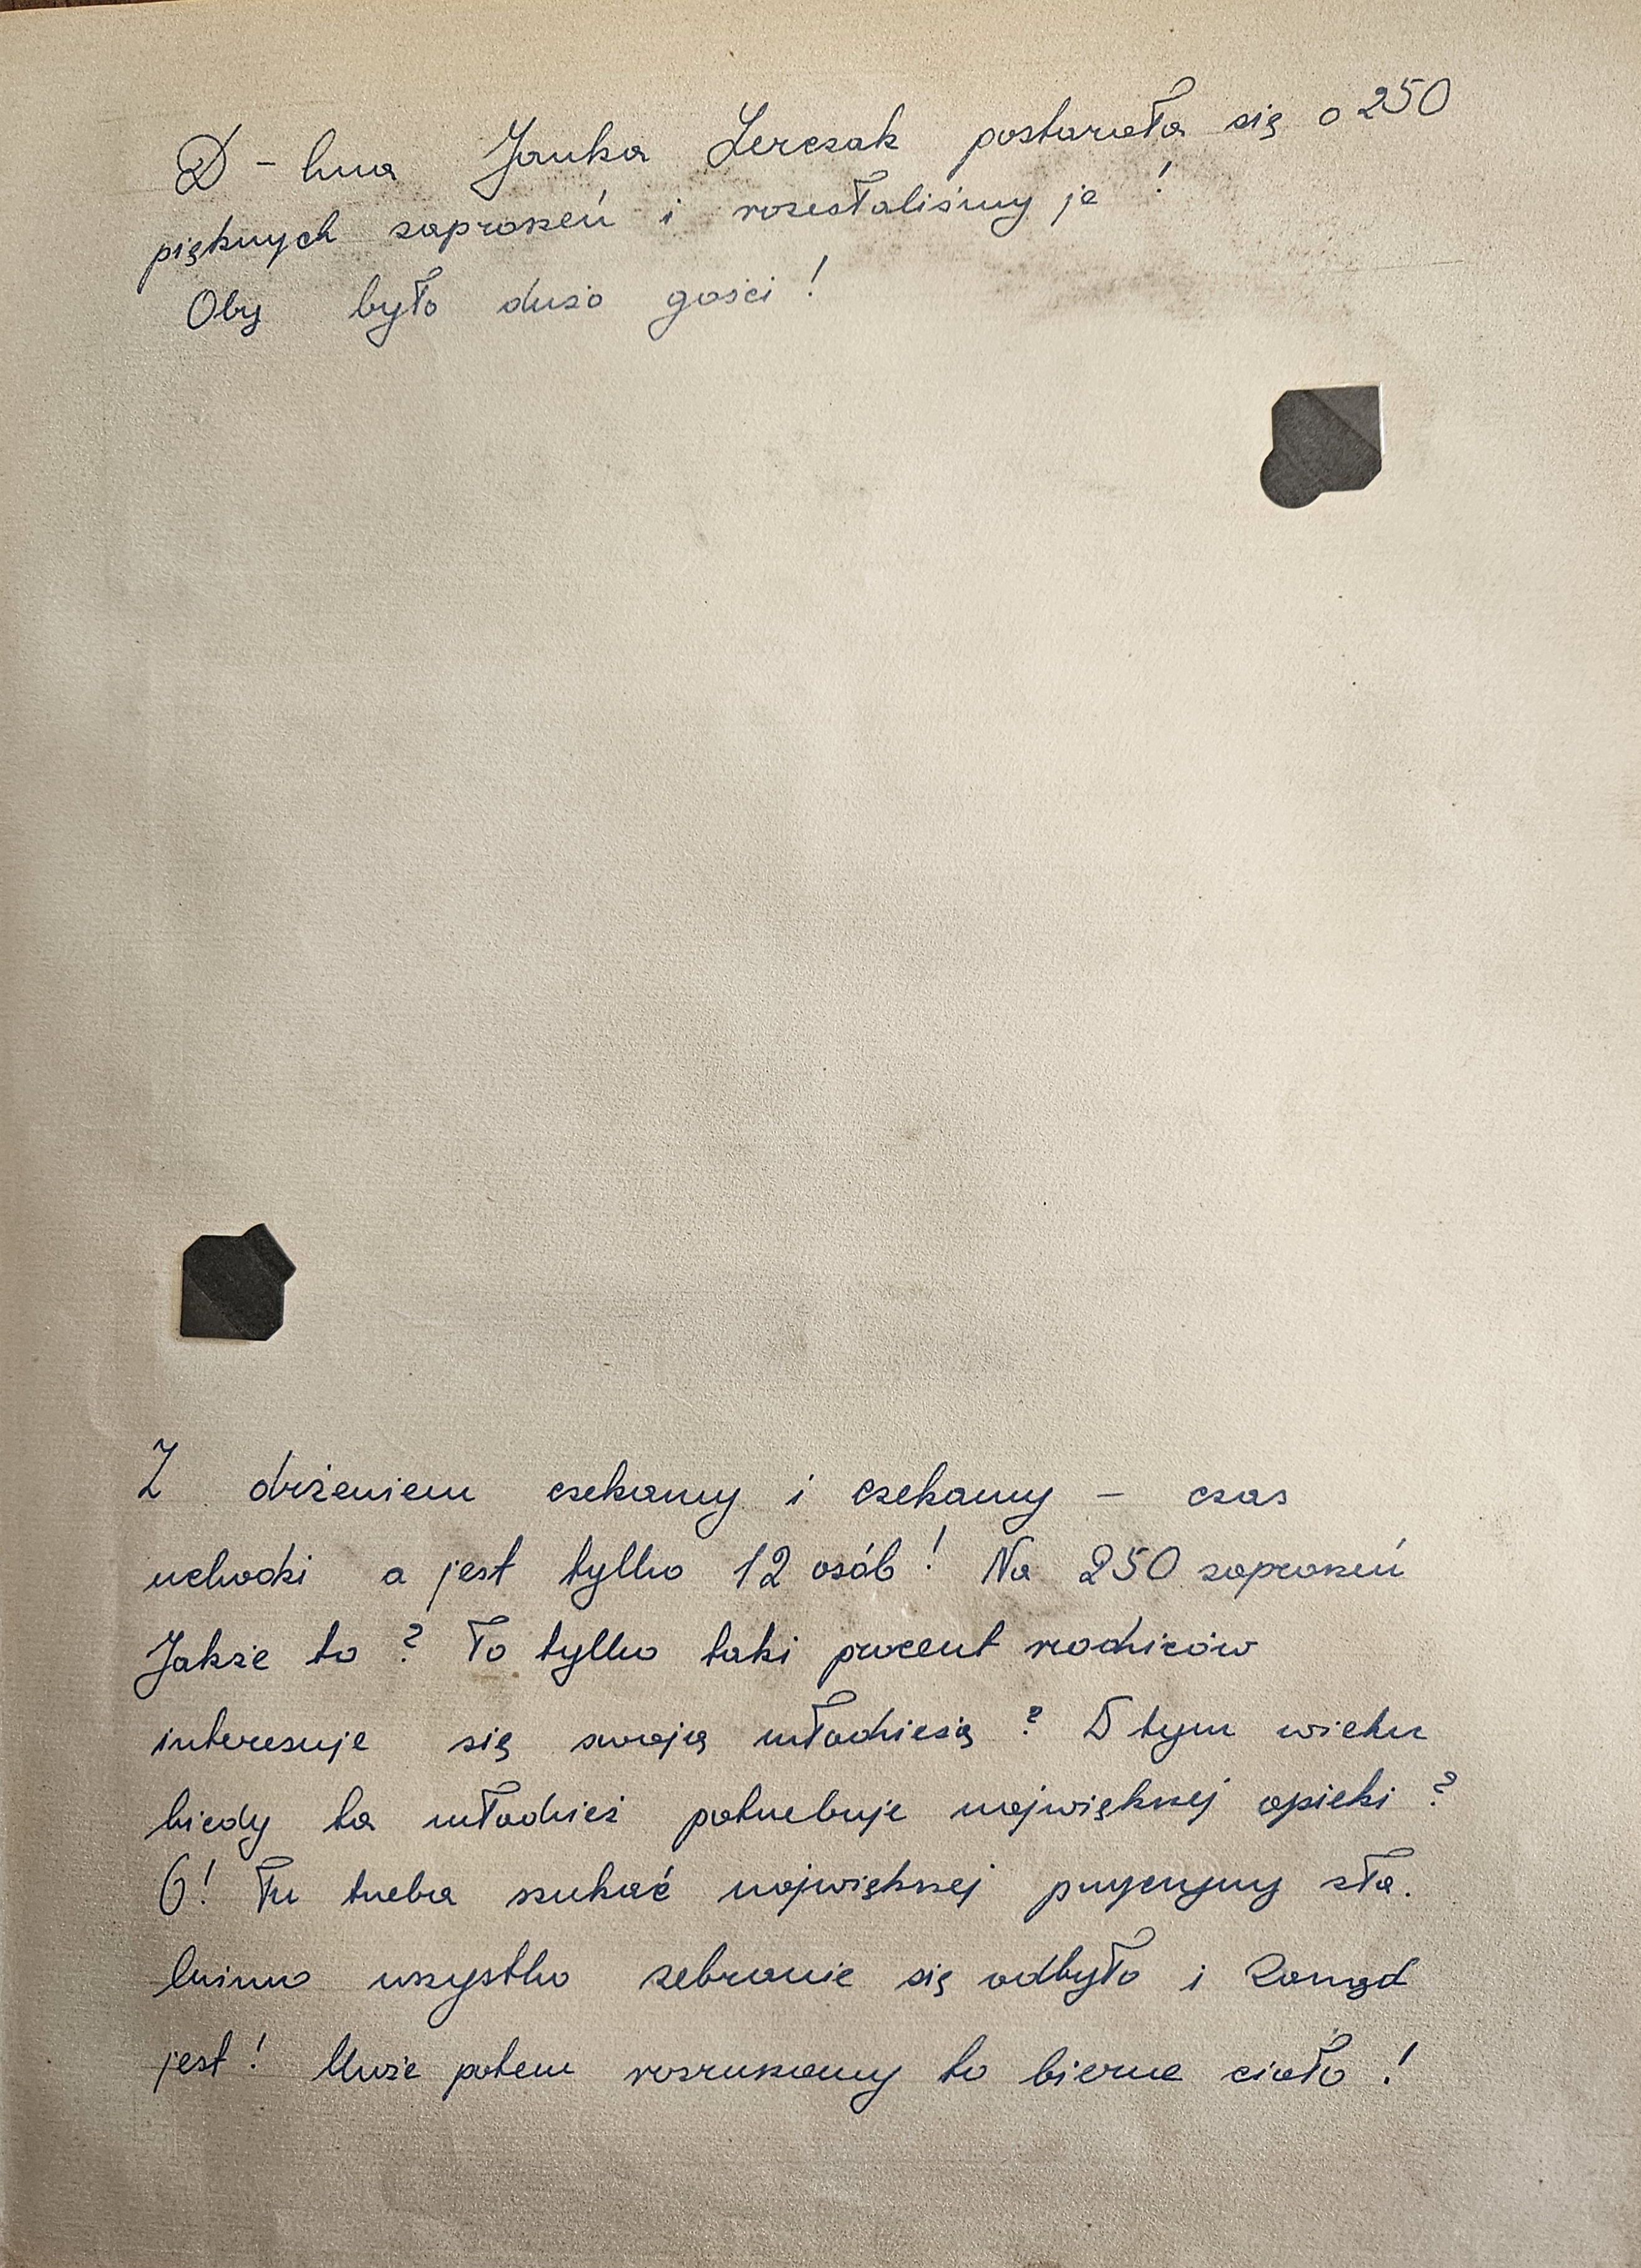 D-hna Janka Lerczak postarała się o 250
pięknych zaproszeń i rozesłaliśmy je!
Oby było dużo gości!
Z drżeniem czekamy i czekamy – czas
uchodzi a jest tylko 12 osób! Na 250 zaproszeń
Jakże to? To tylko taki procent rodziców
interesuje się swoją młodzieżą? W tym wieku
kiedy ta młodzież potrzebuje największej opieki?
O! Tu trzeba szukać największej przyczyny zła.
Mimo wszystko zebranie się odbyło i Zarząd
jest! Może potem rozruszamy to bierne ciało!